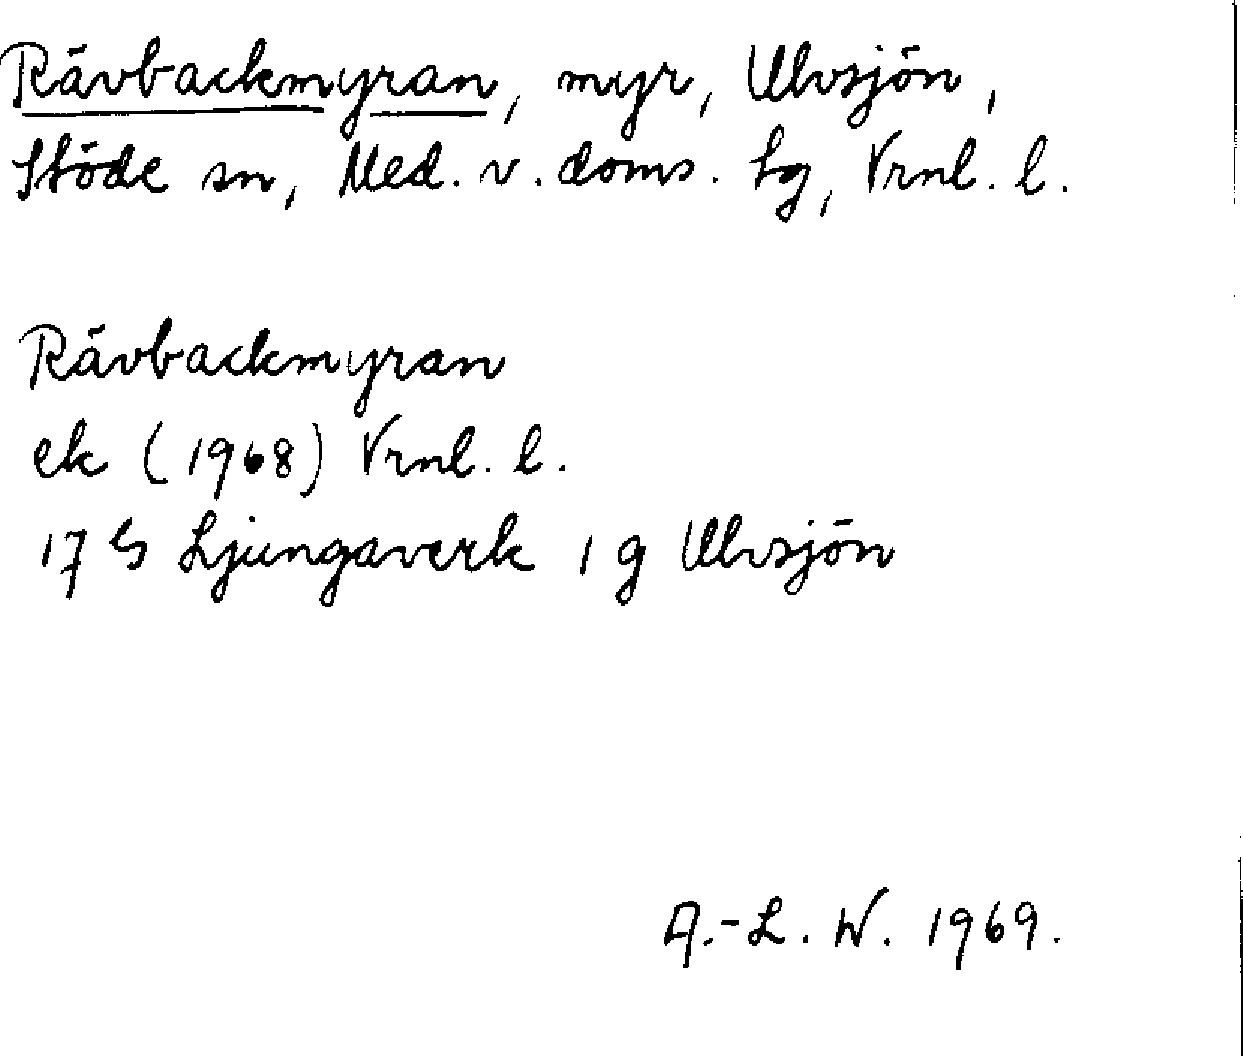 Rävbackmyran, myr, Ulvsjön,
Stöde sn, Med. v. doms. tg, Vrnl. l.
Rävbackmyran
ek (1968) Vrnl. l.
17 G Ljungaverk 1 g Ulvsjön
A.-L. W. 1969.